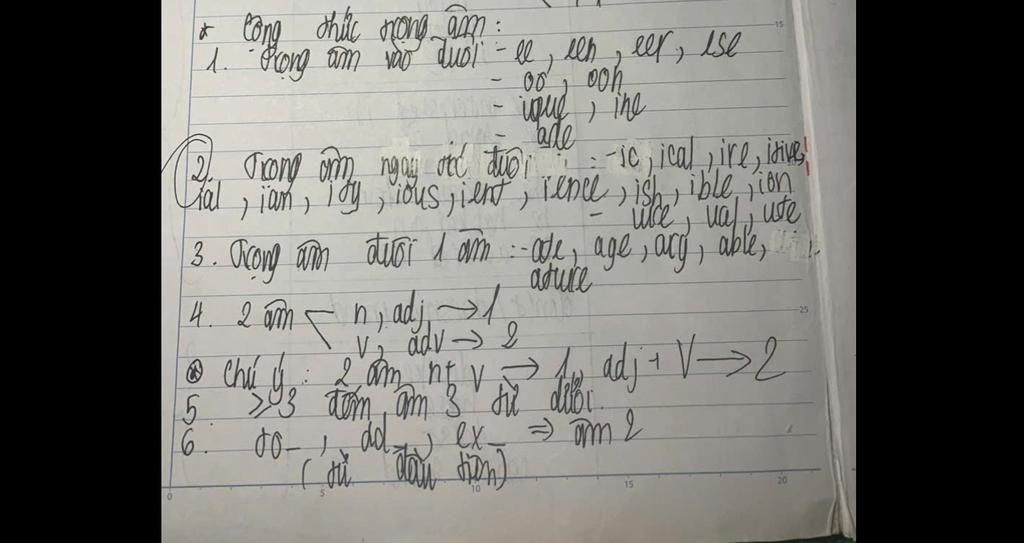 * Công thức trọng âm:
1. Trọng âm vào đuôi - ee, een, eer, ese
- oo, ooh
- ique, ine
- ade
2. Trọng âm ngay trc đuôi : - ic, ical, ire, itive,
ial, iam, ity, ious, ient, ience, ish, ible, ion
- uce, ual, ute
3. Trọng âm đuôi 1 âm : - ate, age, ary, able,
ature
4. 2 âm n, adj → 1
v, adv → 2
* Chú ý : 2 âm n + v → 1, adj + V → 2
5 ≥ 3 đếm âm 3 từ dưới.
6. to_, ad_, ex_ ⇒ âm 2
(từ đầu tiên)
0 5 10 15 20
15
25